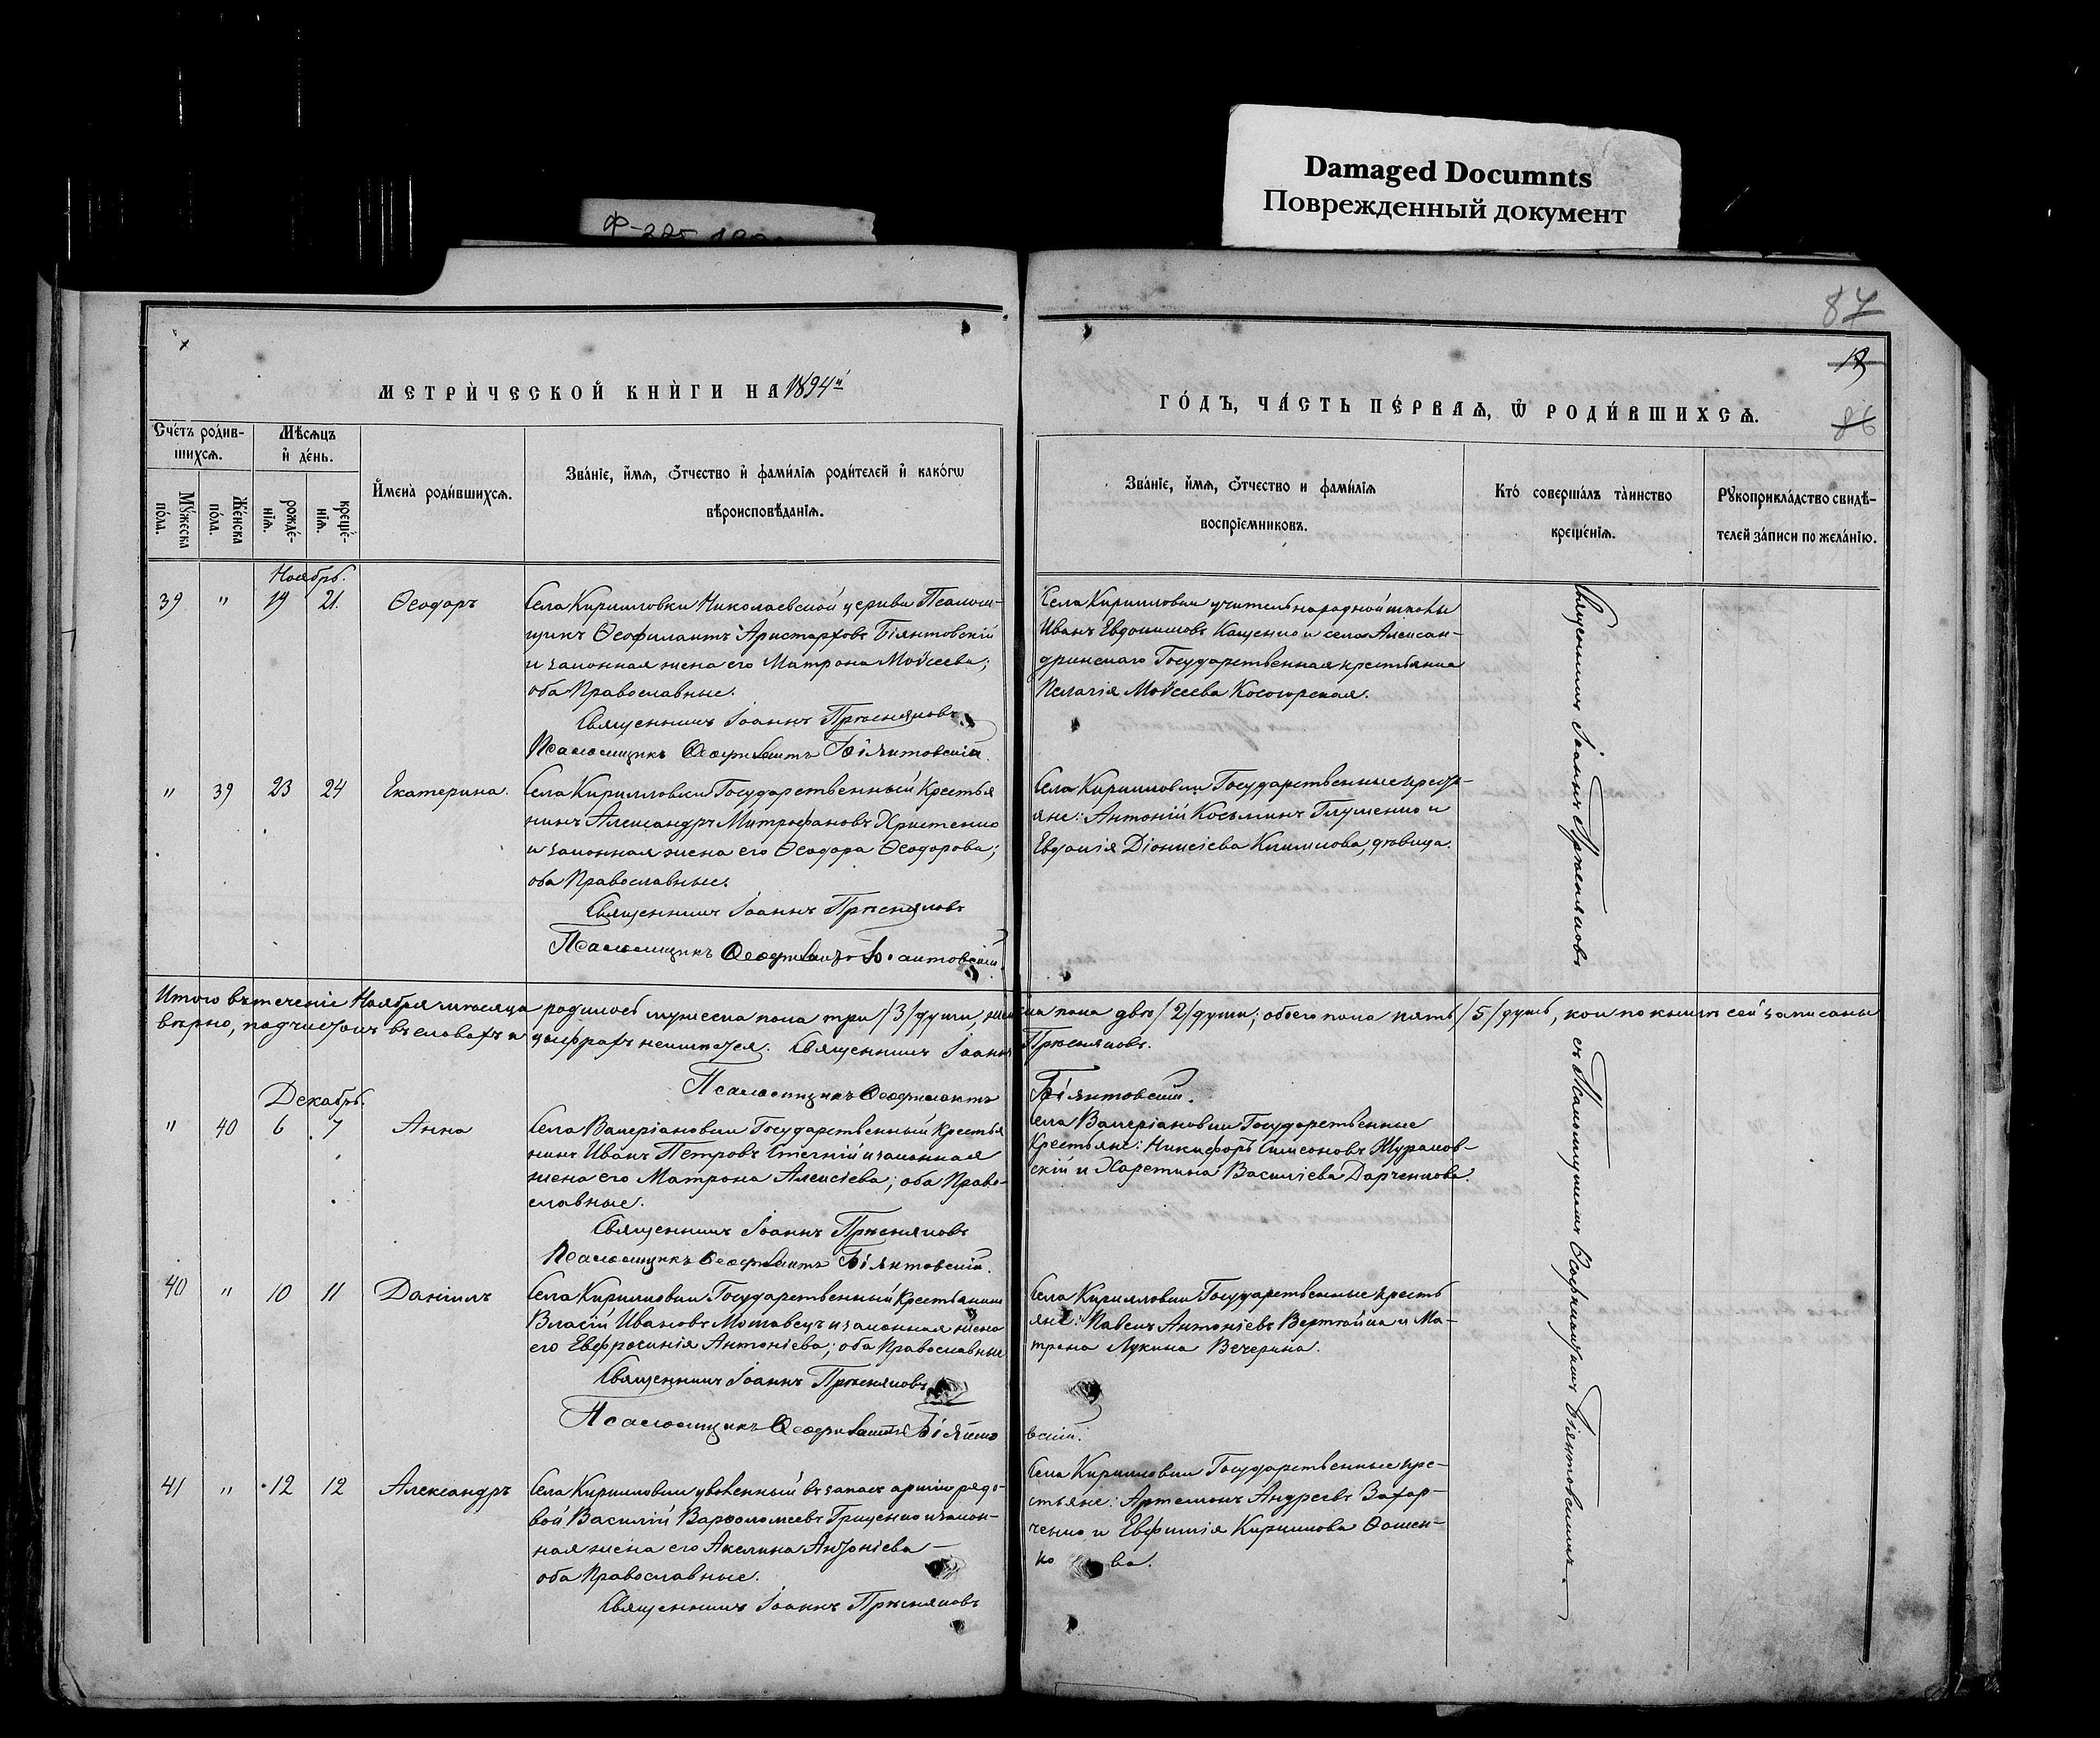 Damaged Documnts
Поврежденный документ
87
19
86
МЕТРИ́ЧЕСКОЙ КНИ́ГИ НА 1894й
ГО́ДЪ, ЧА́СТЬ ПЕ́РВАѦ, Ѡ҆ РОДИ́ВШИХСѦ.
Сче́тъ роди́вшихсѧ.
Мѣ́сѧцъ и҆ де́нь.
Мꙋ́жеска по́ла.
Же́нска по́ла.
рожде́нїѧ.
креще́нїѧ.
И҆мена̀ роди́вшихсѧ.
Зва́нїе, и҆́мѧ, ѻ҆́тчество и҆ фами́лїѧ роди́телей и҆ како́гѡ
вѣроисповѣ́данїѧ.
Зва́нїе, и҆́мѧ, ѻ҆́тчество и фами́лїѧ
воспрїе́мниковъ.
Кто́ соверша́лъ та́инство
креще́нїѧ.
Рꙋкоприкла́дство свидѣ́-
телей за́писи по жела́нїю.
Ноябрь.
39 " 19 21. Ѳеодоръ
Села Кирилловки Николаевской церкви Псалом-
щикъ Ѳеофилактъ Аристарховъ Біянтовскій
и законная жена его Матрона Моѵсеева;
оба Православные.
Священникъ Іоаннъ Прѣсняковъ
Псаломщикъ Ѳеофилактъ Біянтовскій.
Села Кирилловки учитель народной школы
Иванъ Евдокимовъ Кащенко и села Алексан-
дринскаго Государственная крестьянка
Пелагія Моѵсеева Косогорская.
" 39 23 24 Екатерина.
Села Кирилловки Государственный Крестья
нинъ Александръ Митрофановъ Христенко
и законная жена его Ѳеодора Ѳеодорова;
оба Православные.
Священникъ Іоаннъ Прѣсняковъ
Псаломщикъ Ѳеофилактъ Біянтовскій.
Села Кирилловки Государственные крест-
яне: Антоній Косьминъ Глущенко и
Евдокія Діонисіева Климкова, вдовица.
Итого въ теченіе Ноября мѣсяца родилось мужеска пола три /3/ души, женска пола двѣ /2/ души; обоего пола пять /5/ душъ, кои по книгѣ сей записаны
вѣрно, подчистокъ въ словахъ и цыфрахъ неимѣется. Священникъ Іоаннъ Прѣсняковъ.
Псаломщикъ Ѳеофилактъ Біянтовскій.
Декабрь.
" 40 6 7 Анна
Села Валеріановки Государственный Крестья
нинъ Иванъ Петровъ и законная
жена его Матрона Алексіева; оба Право-
славные.
Священникъ Іоаннъ Прѣсняковъ
Псаломщикъ Ѳеофилактъ Біянтовскій.
Села Валеріановки Государственные
Крестьяне: Никифоръ Симеоновъ Журавов-
скій и Харетина Василіева Дарченкова.
40 " 10 11 Даніилъ
Села Кирилловки Государственный Крестьянинъ
Власій Ивановъ Мотавецъ и законная жена
его Евфросинія Антоніева; оба Православные
Священникъ Іоаннъ Прѣсняковъ
Псаломщикъ Ѳеофилактъ Біянтовскій.
Села Кирилловки Государственные кресть
яне: Павелъ Антоніевъ Вертгойка и Ма-
трона Лукина Вечерина.
41 " 12 12 Александръ
Села Кирилловки уволенный въ запасъ арміи рядо-
вой Василій Варѳоломеевъ Гриценко и закон-
ная жена его Акелина Антоніева —
оба Православные.
Священникъ Іоаннъ Прѣсняковъ
Села Кирилловки Государственные кре-
стьяне: Артемонъ Андреевъ Захар-
ченко и Евфимія Кириллова Ѳомен-
кова.
Священникъ Іоаннъ Прѣсняковъ съ Псаломщикомъ Ѳеофилактомъ Біянтовскимъ.